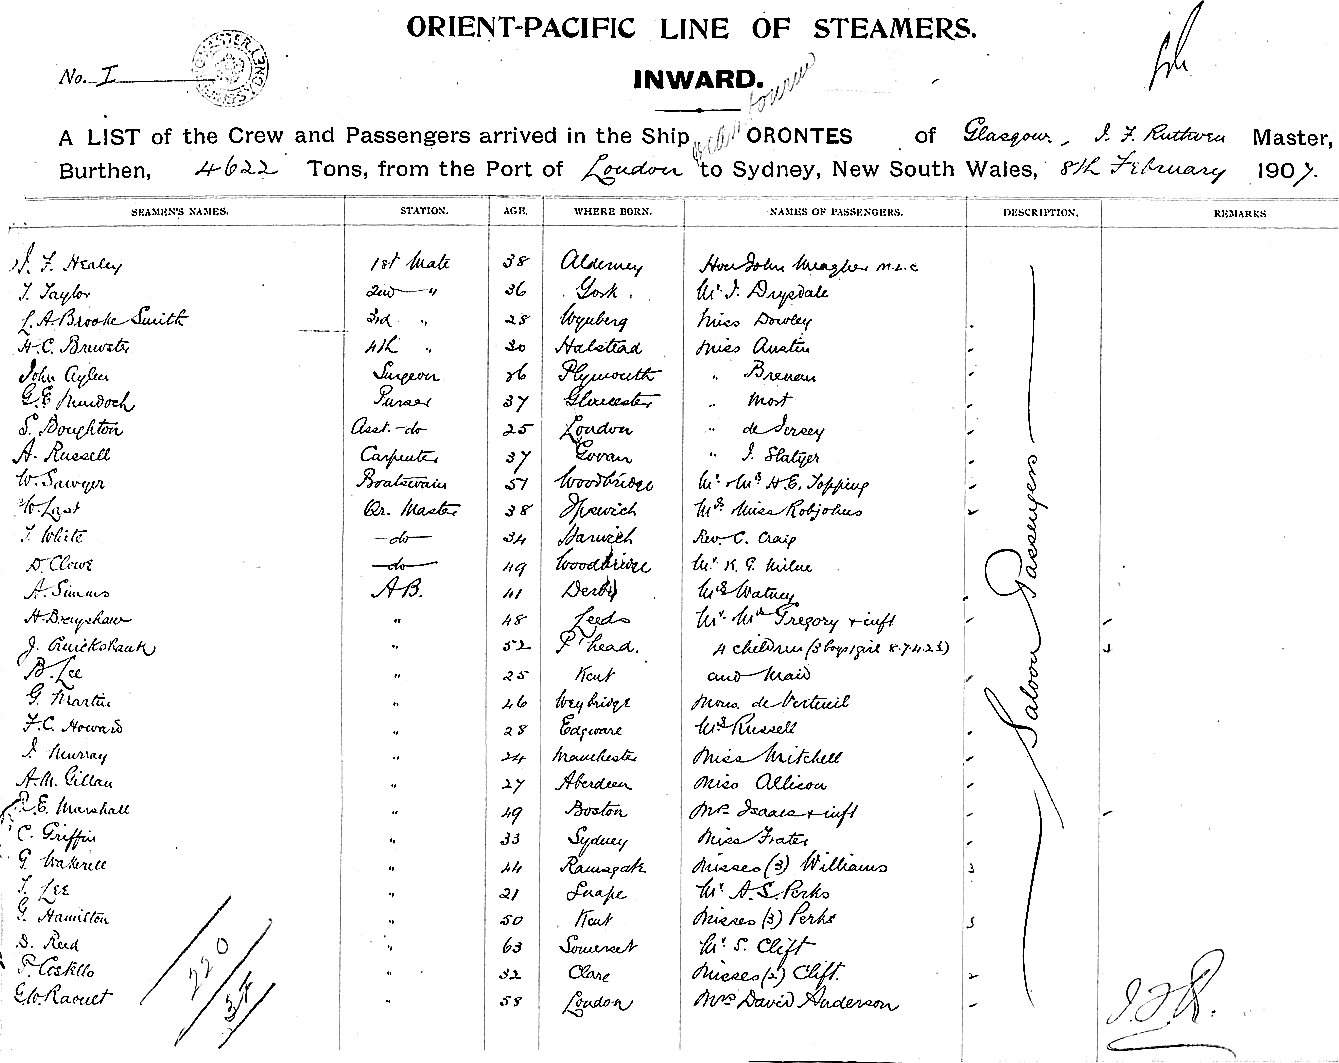 ORIENT-PACIFIC LINE OF STEAMERS.
No. I
INWARD.
A LIST of the Crew and Passengers arrived in the Ship ORONTES of Glasgow, J. F. Ruthven Master,
Burthen, 4622 Tons, from the Port of London to Sydney, New South Wales, 8th February 1907.
SEAMEN'S NAMES. STATION. AGE. WHERE BORN. NAMES OF PASSENGERS. DESCRIPTION. REMARKS
J. F. Healey 1st Mate 38 Alderney Hon John Meagher M.L.C
T. Taylor 2nd " 36 York. Mr J. Drysdale
L. A. Brooke Smith 3rd " 28 Wynberg Miss Dowley
H. C. Brewster 4th " 30 Halstead Miss Austin
John Aylen Surgeon 26 Plymouth " Brenan
G. E. Murdoch Purser 37 Gloucester " Most
S. Boughton Asst. do 25 London " de Jersey
A. Russell Carpenter 37 Govan " J. Slatyer
W. Sawyer Boatswain 51 Woodbridge Mr & Mrs H. E. Topping
W. Last Qr. Master 38 Ipswich Mrs Miss Robjohns
T. White do 34 Harwich Rev. C. Craig
D. Clowe do 49 Woodbridge Mr K. G. Milne
A. Simms A.B. 41 Derby Mrs Watney
H. Brayshaw " 48 Leeds Mr. Mrs Gregory + inft
J. Cruickshank " 52 P'head. 4 children (3 boys 1 girl 8.7.4.2½)
B. Lee " 25 Kent and Maid
G. Martin " 46 Weybridge Mons. de Verteuil
F. C. Howard " 28 Edgware Mrs Russell
J. Murray " 24 Manchester Miss Mitchell
A. M. Gillan " 27 Aberdeen Miss Allison
R. E. Marshall " 49 Boston Mrs Isaacs + inft
C. Griffin " 33 Sydney Miss Frater
G. Wakerell " 44 Ramsgate Misses (3) Williams 3
T. Lee " 21 Snape Mr A. S. Perks
G. Hamilton " 50 Kent Misses (3) Perks 3
D. Reid " 63 Somerset Mr S. Clift
P. Costello " 32 Clare Misses (2) Clift. 2
G. W. Raoult " 58 London Mrs David Anderson
Saloon Passengers
220
34
J.F.R.